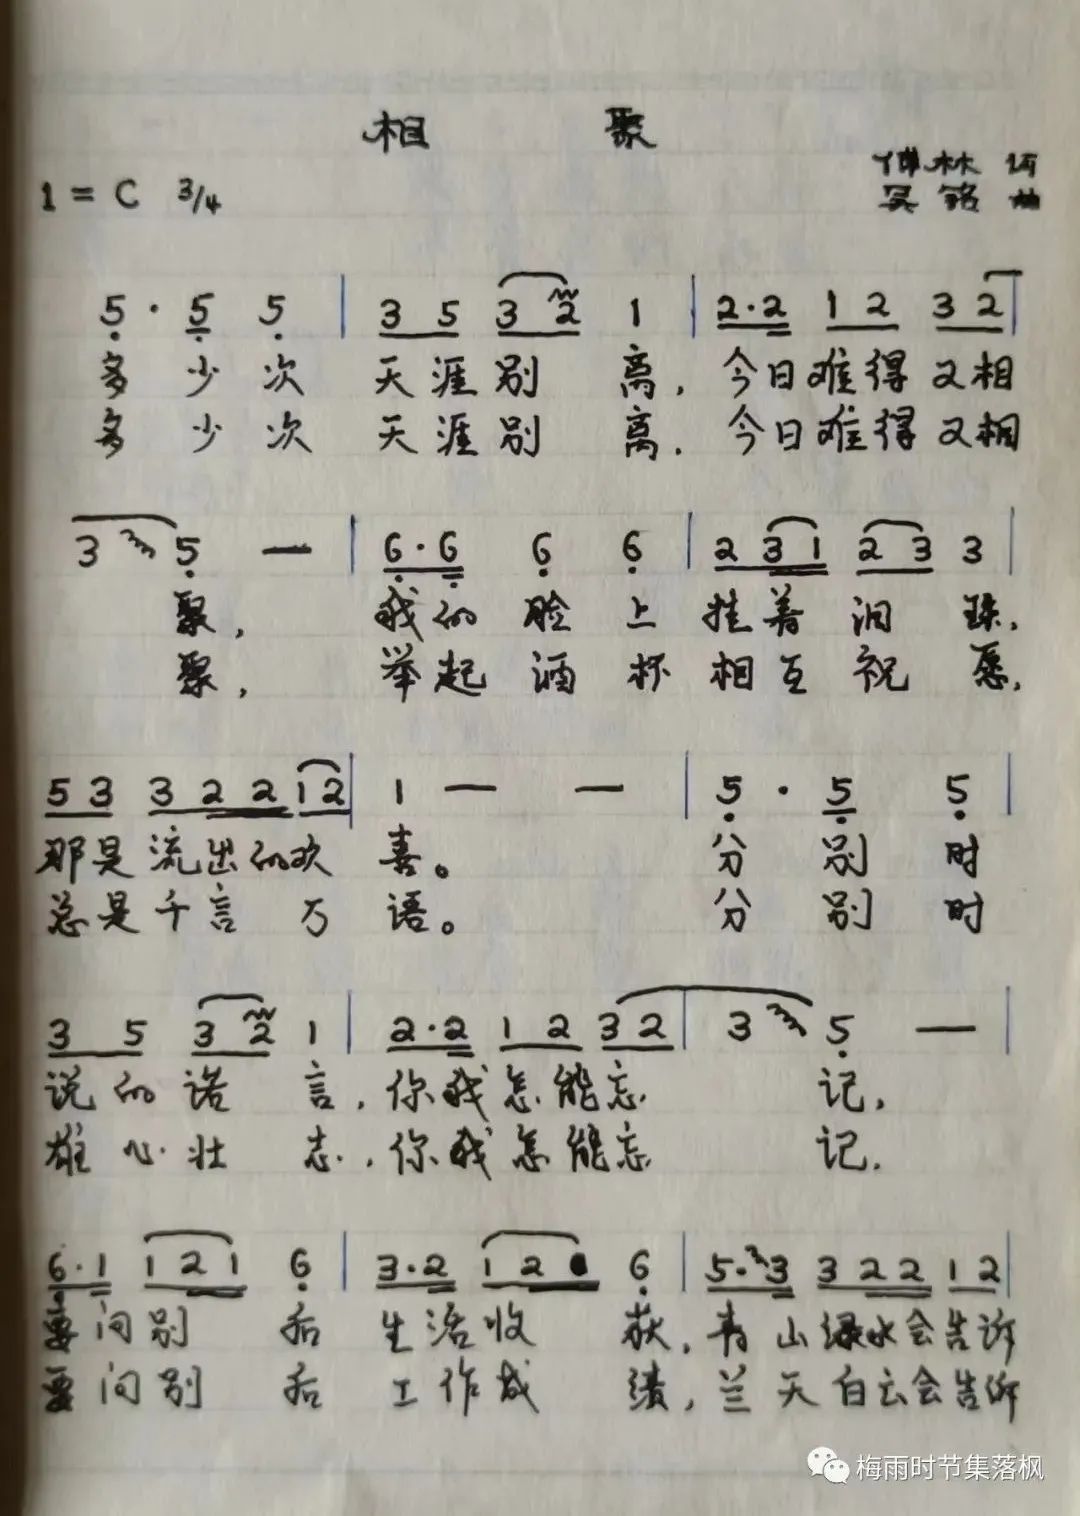 相 聚
林 词
1 = C 3/4
吴 铭 曲
5 · 5 5 | 3 5 3 2 1 | 2·2 1 2 3 2 |
多 少 次 天 涯 别 离, 今日难得又相
多 少 次 天 涯 别 离. 今日难得又相
3 5 — | 6·6 6 6 | 2 3 1 2 3 3 |
聚, 我的 脸 上 挂着 泪 珠,
聚, 举起 酒 杯 相互 祝 愿,
5 3 3 2 2 1 2 | 1 — — | 5 · 5 5 |
那是流出的欢 喜。 分 别 时
总是千言 万 语。 分 别 时
3 5 3 2 1 | 2·2 1 2 3 2 | 3 5 —
说 的 诺 言, 你我怎能忘 记,
雄 心 壮 志, 你我怎能忘 记.
6·1 1 2 1 6 | 3·2 1 2 6 | 5·3 3 2 2 1 2 |
要问别 后 生活收 获, 青山绿水会告诉
要问别 后 工作成 绩, 兰天白云会告诉
梅雨时节集落枫